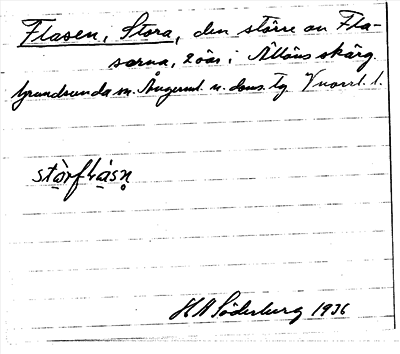 Flasen, Stora, den större av Fla-
sarna, 2 öar i Ältöns skärg.
Grundsunda sn. Ångerml. n. doms. tg Vnorrl. l.
stòrflásn̥
HA Söderburg 1936